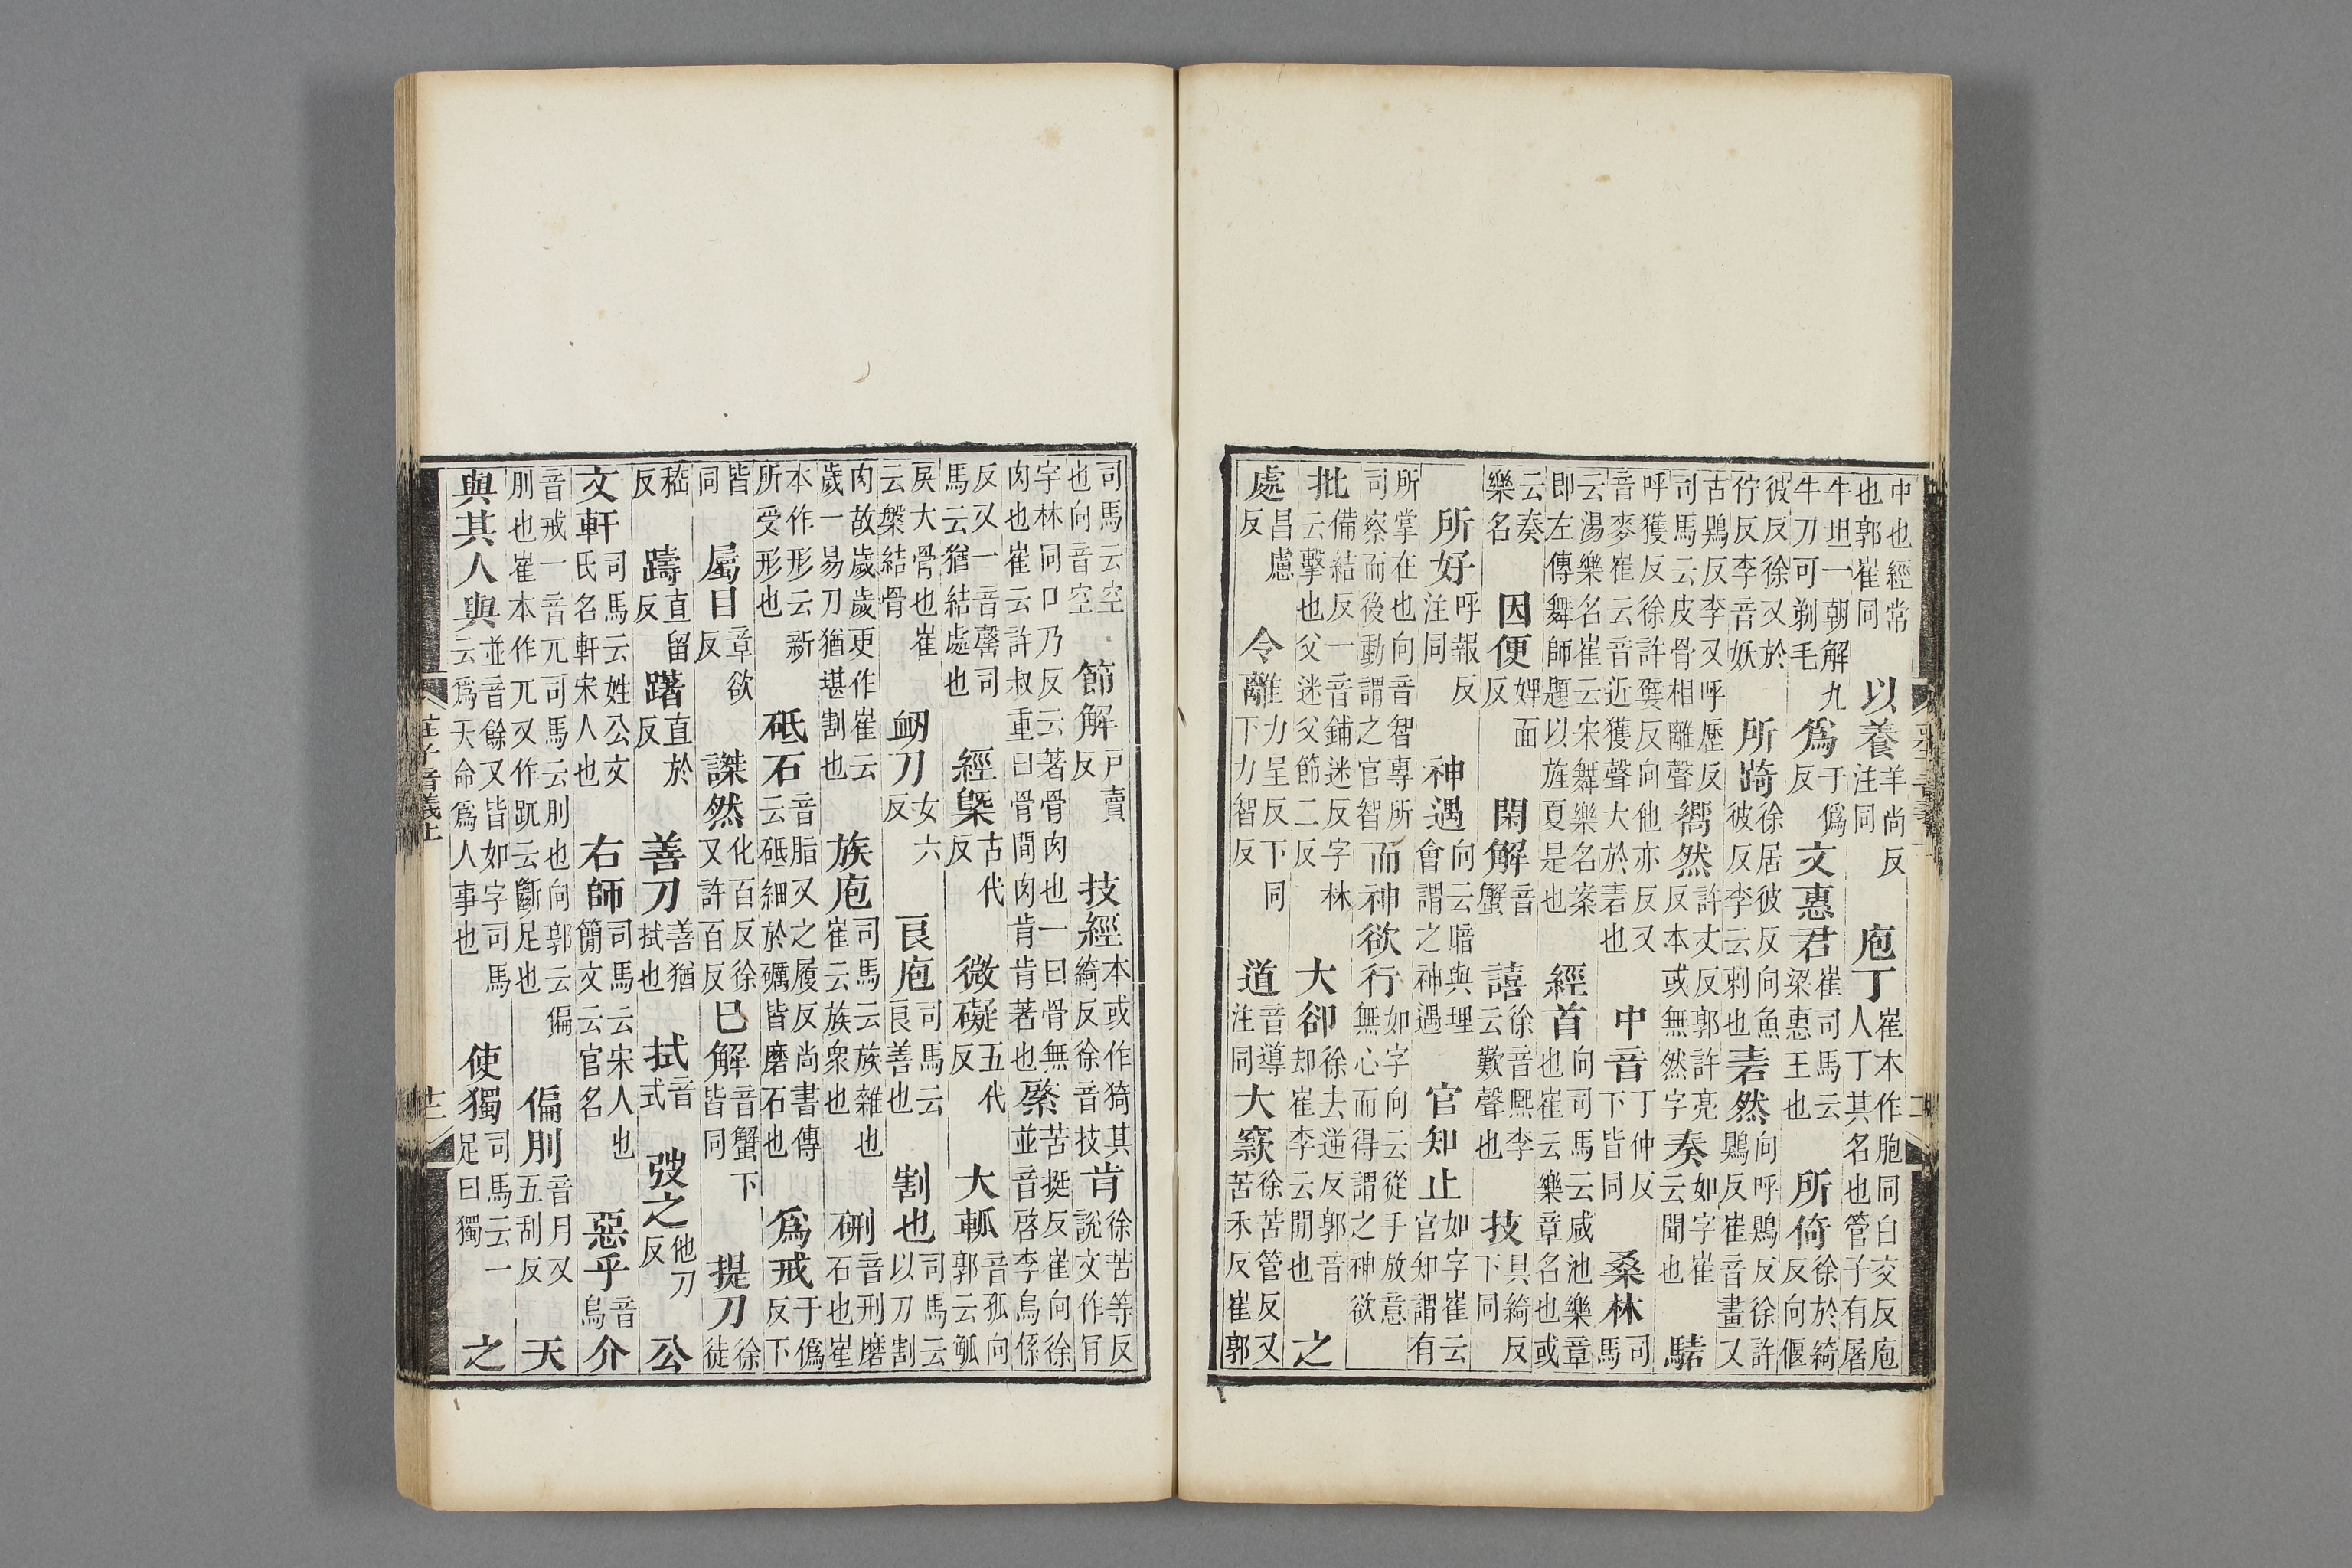 中也經常也郭崔同　以養羊尚反注同　庖丁崔本作胞同白交反庖人丁其名也管子有屠
牛坦一朝解九牛刀可剃毛　爲于僞反　文惠君崔司馬云梁惠王也　所倚徐於綺反向偃
彼反徐又於佇反李音妖　所踦徐居彼反向魚彼反李云刺也　砉然向呼鵙反徐許鵙反崔音畫又
古鵙反李又呼歷反司馬云皮骨相離聲　嚮然許丈反郭許亮反本或無然字　奏如字崔云聞也　騞
呼獲反徐許嬖反向他亦反又音麥崔云音近獲聲大於砉也　中音丁仲反下皆同　桑林司馬
云湯樂名崔云宋舞樂名案即左傳舞師題以旌夏是也　經首向司馬云咸池樂章也崔云樂章名也或
云奏樂名　因便婢面反　閑解音蟹　譆徐音熙李云歎聲也　技具綺反下同
所好呼報反注同　神遇向云暗與理會謂之神遇　官知止如字崔云官知謂有
所掌在也向音智專所司察而後動謂之官智　而神欲行如字向云從手放意無心而得謂之神欲
批備結反一音鋪迷反字林云擊也父迷父節二反　大卻徐去逆反郭音却崔李云閒也　之
處昌慮反　令離力呈反下力智反下同　道音導注同　大窾徐苦管反又苦禾反崔郭
司馬云空也向音空　節解戶賣反　技經本或作猗其綺反徐音技　肯徐苦等反說文作肎
字林同口乃反云著骨肉也一曰骨無肉也崔云許叔重曰骨間肉肯肯著也　綮苦挺反崔向徐並音啓李烏係
反又一音罄司馬云猶結處也　經槩古代反　微礙五代反　大軱音孤向郭云觚
戾大骨也崔云槃結骨　衂刀女六反　良庖司馬云良善也　割也司馬云以刀割
肉故歲歲更作崔云歲一易刀猶堪割也　族庖司馬云族雜也崔云族衆也　硎音刑磨石也崔
本作形云新所受形也　砥石音脂又之履反尚書傳云砥細於礪皆磨石也　爲戒于僞反下
皆同　屬目章欲反　謋然化百反徐又許百反　已解音蟹下皆同　提刀徐徒
嵇反　躊直留反　躇直於反　善刀善猶拭也　拭音式　弢之他刀反　公
文軒司馬云姓公文氏名軒宋人也　右師司馬云宋人也簡文云官名　惡乎音烏　介
音戒一音兀司馬云刖也向郭云偏刖也崔本作兀又作䟓云斷足也　偏刖音月又五刮反　天
與其人與並音餘又皆如字司馬云爲天命爲人事也　使獨司馬云一足曰獨　之
莊子音義上